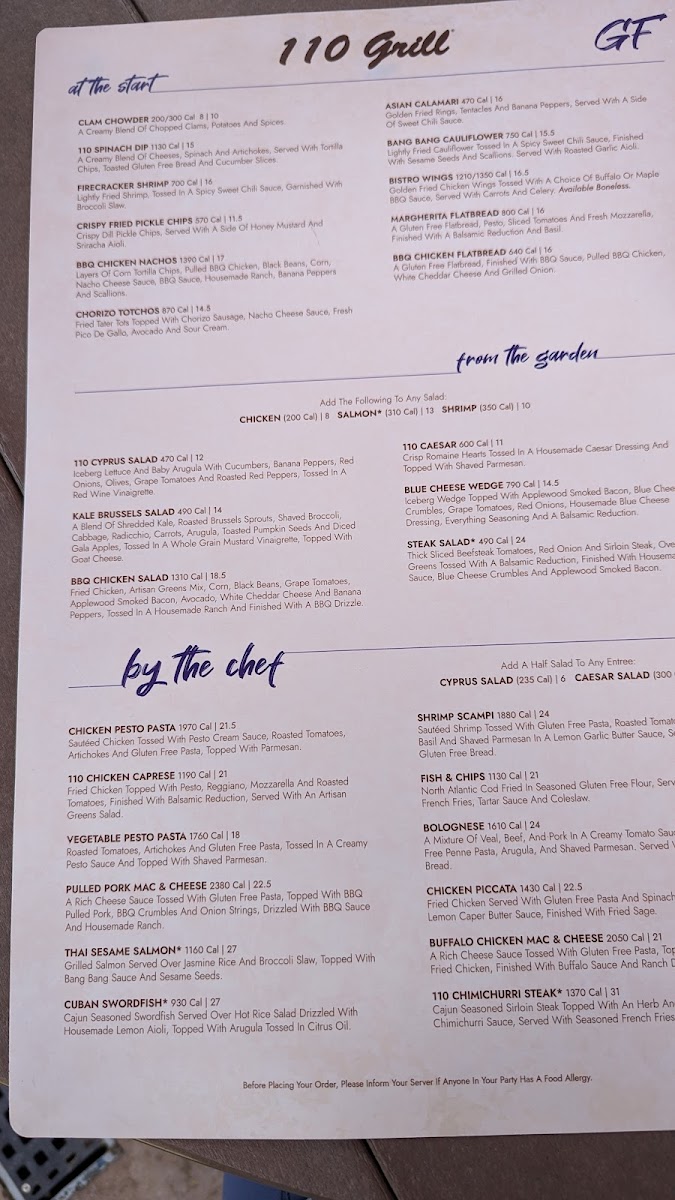 110 Grill
GF
at the start
CLAM CHOWDER 200/300 Cal 8 | 10
A Creamy Blend Of Chopped Clams, Potatoes And Spices.
110 SPINACH DIP 1130 Cal | 15
A Creamy Blend Of Cheeses, Spinach And Artichokes, Served With Tortilla
Chips, Toasted Gluten Free Bread And Cucumber Slices.
FIRECRACKER SHRIMP 700 Cal | 16
Lightly Fried Shrimp, Tossed In A Spicy Sweet Chili Sauce, Garnished With
Broccoli Slaw.
CRISPY FRIED PICKLE CHIPS 570 Cal | 11.5
Crispy Dill Pickle Chips, Served With A Side Of Honey Mustard And
Sriracha Aioli.
BBQ CHICKEN NACHOS 1390 Cal | 17
Layers Of Corn Tortilla Chips, Pulled BBQ Chicken, Black Beans, Corn,
Nacho Cheese Sauce, BBQ Sauce, Housemade Ranch, Banana Peppers
And Scallions.
CHORIZO TOTCHOS 870 Cal | 14.5
Fried Tater Tots Topped With Chorizo Sausage, Nacho Cheese Sauce, Fresh
Pico De Gallo, Avocado And Sour Cream.
ASIAN CALAMARI 470 Cal | 16
Golden Fried Rings, Tentacles And Banana Peppers, Served With A Side
Of Sweet Chili Sauce.
BANG BANG CAULIFLOWER 750 Cal | 15.5
Lightly Fried Cauliflower Tossed In A Spicy Sweet Chili Sauce, Finished
With Sesame Seeds And Scallions. Served With Roasted Garlic Aioli.
BISTRO WINGS 1210/1350 Cal | 16.5
Golden Fried Chicken Wings Tossed With A Choice Of Buffalo Or Maple
BBQ Sauce, Served With Carrots And Celery. Available Boneless.
MARGHERITA FLATBREAD 800 Cal | 16
A Gluten Free Flatbread, Pesto, Sliced Tomatoes And Fresh Mozzarella,
Finished With A Balsamic Reduction And Basil.
BBQ CHICKEN FLATBREAD 640 Cal | 16
A Gluten Free Flatbread, Finished With BBQ Sauce, Pulled BBQ Chicken,
White Cheddar Cheese And Grilled Onion.
from the garden
Add The Following To Any Salad:
CHICKEN (200 Cal) | 8 SALMON* (310 Cal) | 13 SHRIMP (350 Cal) | 10
110 CYPRUS SALAD 470 Cal | 12
Iceberg Lettuce And Baby Arugula With Cucumbers, Banana Peppers, Red
Onions, Olives, Grape Tomatoes And Roasted Red Peppers, Tossed In A
Red Wine Vinaigrette.
KALE BRUSSELS SALAD 490 Cal | 14
A Blend Of Shredded Kale, Roasted Brussels Sprouts, Shaved Broccoli,
Cabbage, Radicchio, Carrots, Arugula, Toasted Pumpkin Seeds And Diced
Gala Apples, Tossed In A Whole Grain Mustard Vinaigrette, Topped With
Goat Cheese.
BBQ CHICKEN SALAD 1310 Cal | 18.5
Fried Chicken, Artisan Greens Mix, Corn, Black Beans, Grape Tomatoes,
Applewood Smoked Bacon, Avocado, White Cheddar Cheese And Banana
Peppers, Tossed In A Housemade Ranch And Finished With A BBQ Drizzle.
110 CAESAR 600 Cal | 11
Crisp Romaine Hearts Tossed In A Housemade Caesar Dressing And
Topped With Shaved Parmesan.
BLUE CHEESE WEDGE 790 Cal | 14.5
Iceberg Wedge Topped With Applewood Smoked Bacon, Blue Chee
Crumbles, Grape Tomatoes, Red Onions, Housemade Blue Cheese
Dressing, Everything Seasoning And A Balsamic Reduction.
STEAK SALAD* 490 Cal | 24
Thick Sliced Beefsteak Tomatoes, Red Onion And Sirloin Steak, Ove
Greens Tossed With A Balsamic Reduction, Finished With Housema
Sauce, Blue Cheese Crumbles And Applewood Smoked Bacon.
by the chef
Add A Half Salad To Any Entree:
CYPRUS SALAD (235 Cal) | 6 CAESAR SALAD (300
CHICKEN PESTO PASTA 1970 Cal | 21.5
Sautéed Chicken Tossed With Pesto Cream Sauce, Roasted Tomatoes,
Artichokes And Gluten Free Pasta, Topped With Parmesan.
110 CHICKEN CAPRESE 1190 Cal | 21
Fried Chicken Topped With Pesto, Reggiano, Mozzarella And Roasted
Tomatoes, Finished With Balsamic Reduction, Served With An Artisan
Greens Salad.
VEGETABLE PESTO PASTA 1760 Cal | 18
Roasted Tomatoes, Artichokes And Gluten Free Pasta, Tossed In A Creamy
Pesto Sauce And Topped With Shaved Parmesan.
PULLED PORK MAC & CHEESE 2380 Cal | 22.5
A Rich Cheese Sauce Tossed With Gluten Free Pasta, Topped With BBQ
Pulled Pork, BBQ Crumbles And Onion Strings, Drizzled With BBQ Sauce
And Housemade Ranch.
THAI SESAME SALMON* 1160 Cal | 27
Grilled Salmon Served Over Jasmine Rice And Broccoli Slaw, Topped With
Bang Bang Sauce And Sesame Seeds.
CUBAN SWORDFISH* 930 Cal | 27
Cajun Seasoned Swordfish Served Over Hot Rice Salad Drizzled With
Housemade Lemon Aioli, Topped With Arugula Tossed In Citrus Oil.
SHRIMP SCAMPI 1880 Cal | 24
Sautéed Shrimp Tossed With Gluten Free Pasta, Roasted Tomat
Basil And Shaved Parmesan In A Lemon Garlic Butter Sauce, Se
Gluten Free Bread.
FISH & CHIPS 1130 Cal | 21
North Atlantic Cod Fried In Seasoned Gluten Free Flour, Serv
French Fries, Tartar Sauce And Coleslaw.
BOLOGNESE 1610 Cal | 24
A Mixture Of Veal, Beef, And Pork In A Creamy Tomato Sau
Free Penne Pasta, Arugula, And Shaved Parmesan. Served
Bread.
CHICKEN PICCATA 1430 Cal | 22.5
Fried Chicken Served With Gluten Free Pasta And Spinach
Lemon Caper Butter Sauce, Finished With Fried Sage.
BUFFALO CHICKEN MAC & CHEESE 2050 Cal | 21
A Rich Cheese Sauce Tossed With Gluten Free Pasta, Top
Fried Chicken, Finished With Buffalo Sauce And Ranch D
110 CHIMICHURRI STEAK* 1370 Cal | 31
Cajun Seasoned Sirloin Steak Topped With An Herb An
Chimichurri Sauce, Served With Seasoned French Fries
Before Placing Your Order, Please Inform Your Server If Anyone In Your Party Has A Food Allergy.